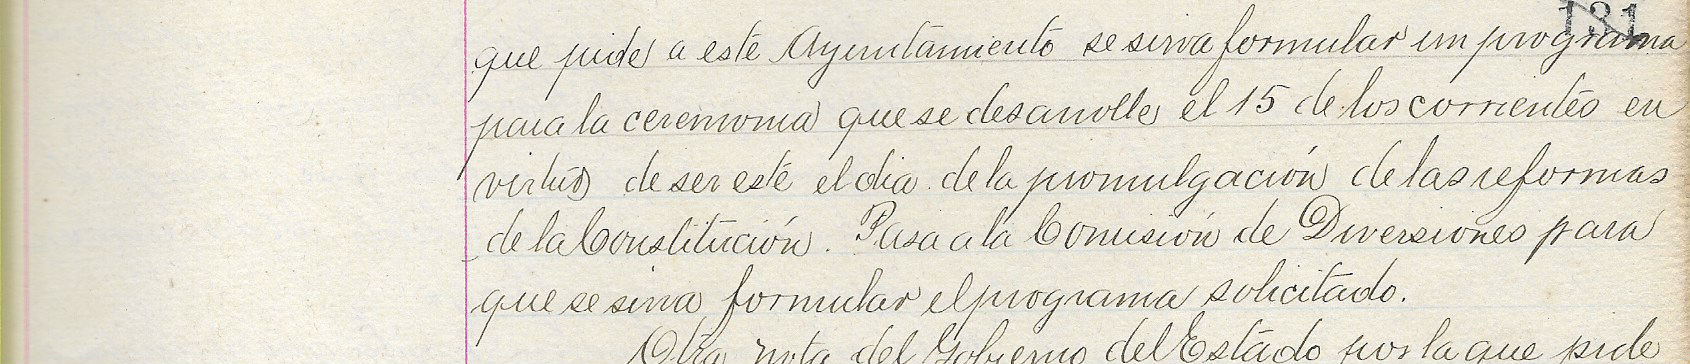 131
que pide a este Ayuntamiento se sirva formular un programa
para la ceremonia que se desarrolle el 15 de los corrientes en
virtud de ser este el dia de la promulgación de las reformas
de la Constitución. Pasa a la Comisión de Diversiones para
que se sirva formular el programa solicitado.
Otra nota del Gobierno del Estado por la que pide